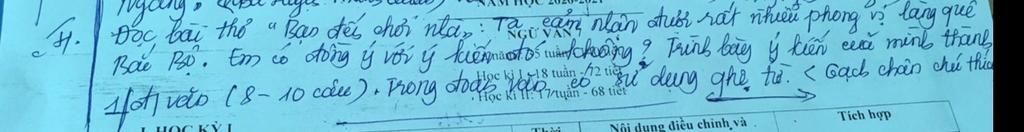 Ngang", (Huyện
NĂM HỌC 2020-2021
H. Đọc bài thơ "Bạn đến chơi nhà": Ta cảm nhận được rất nhiều phong vị làng quê
NGỮ VĂN 7
Bắc Bộ. Em có đồng ý với ý kiến đó không? Trình bày ý kiến của mình thành
Cả năm: 35 tuần
Học kì I: 18 tuần - 72 tiết
1 đ/văn (8 - 10 câu). Trong đoạn văn có sử dụng qht từ. < Gạch chân chú thích
Học kì II: 17 tuần - 68 tiết
I. HỌC KỲ I
Thời
Nội dung điều chỉnh và
Tích hợp